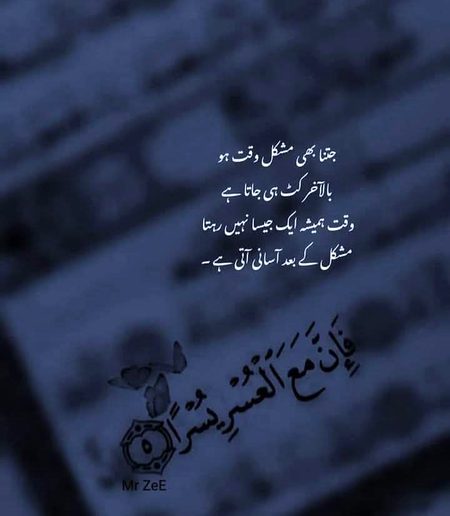 جتنا بھی مشکل وقت ہو
بالآخر کٹ ہی جاتا ہے
وقت ہمیشہ ایک جیسا نہیں رہتا
مشکل کے بعد آسانی آتی ہے ۔
فَإِنَّ مَعَ الْعُسْرِ يُسْرًا ٥
Mr ZeE